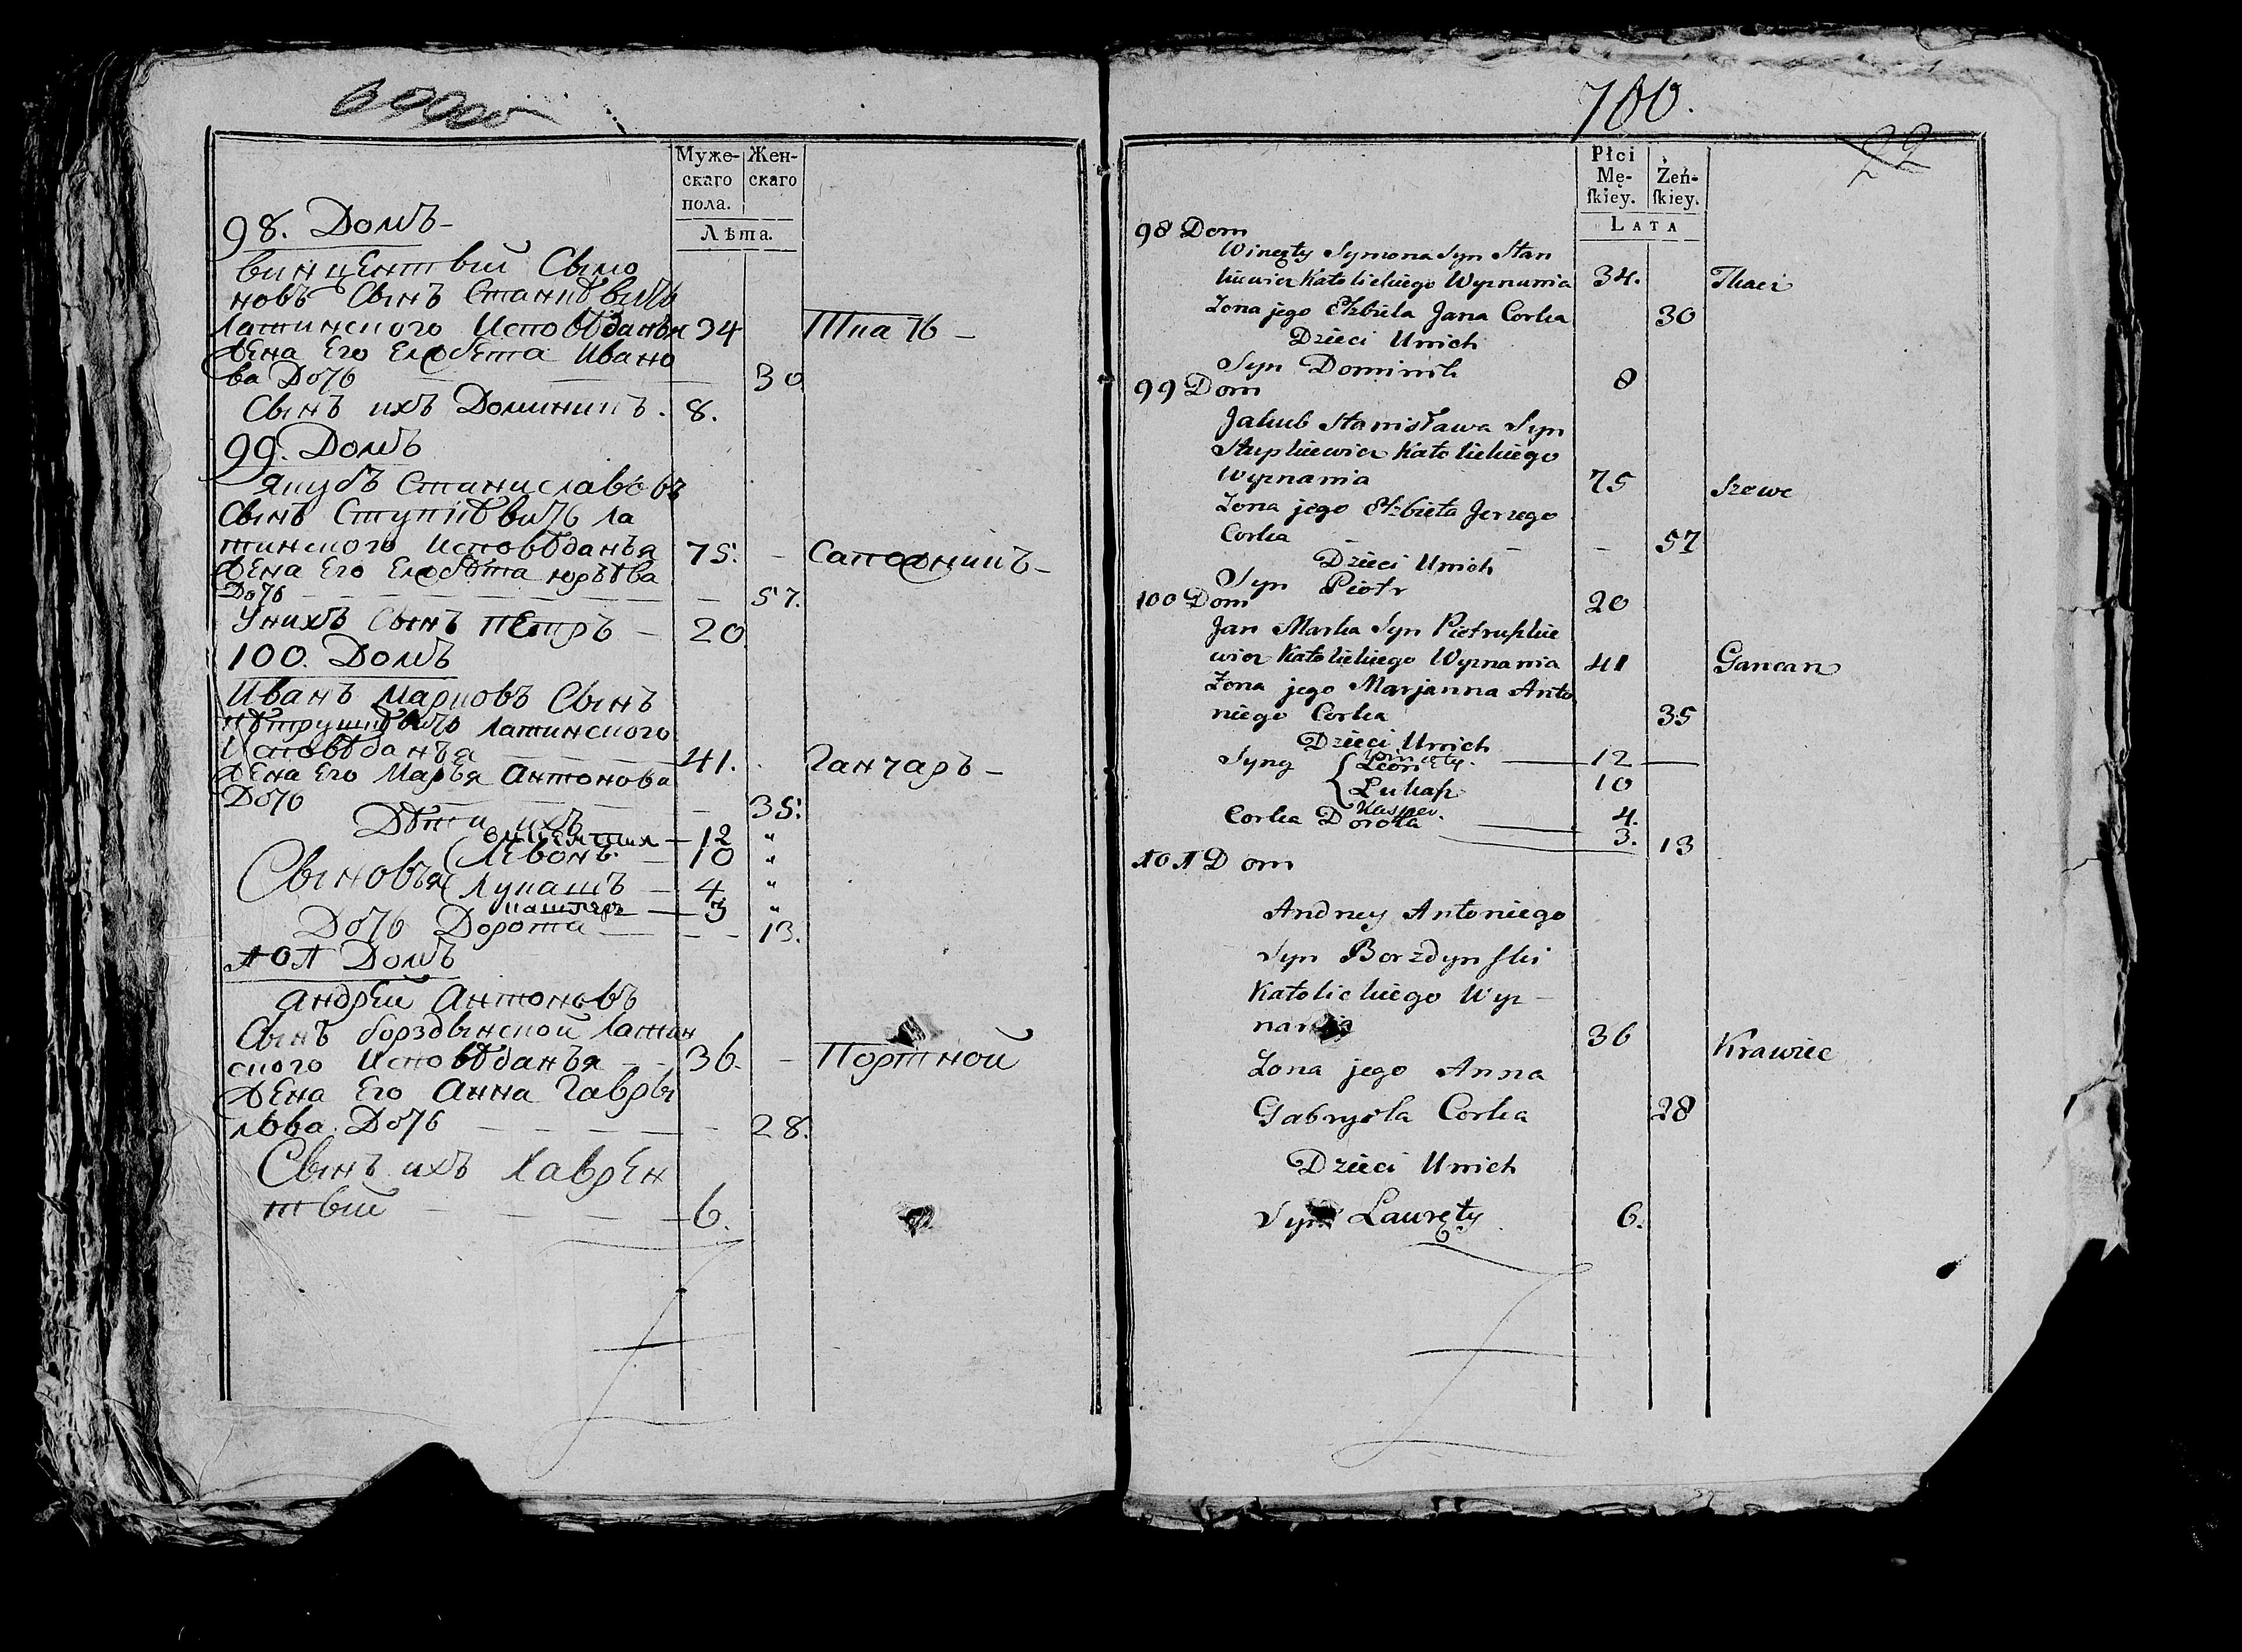 Муже-
скаго
пола.
Жен-
скаго
Лѣта.
98. Домъ
винцентьвій Сымо
новъ Сынъ Станкѣвичъ
латинского Исповѣданья 34 Ткачь
Жена Его Елжбета Ивано
ва Дочь 30
Сынъ ихъ Доминикъ. 8.
99. Домъ
Якубъ Станиславовъ
Сынъ Ступкѣвичь ла
тинского Исповѣданья 75. Сапожникъ
Жена Его Елжбѣта юрьѣва
Дочь 57.
Унихъ Сынъ Петръ 20
100. Домъ
Иванъ Марковъ Сынъ
латинского
Исповѣданья 41. Ганчаръ
Жена Его Марья Антонова
Дочь 35.
Дѣти ихъ
12
Левонъ 10 "
Сыновья Лукашъ 4 "
каштеръ 3 "
Дочь Дорота 13.
101 Домъ
Андрей Антоновъ
Сынъ борздынской латин
ского Исповѣданья 36. Портной
Жена Его Анна Гавры
льва Дочь 28.
Сынъ ихъ Лаврен
тьвій 6.
700.
22
Płci
Mę-
skiey.
Żeń-
skiey.
LATA
98 Dom
Winęty Symona Syn Stan
kiewicz Katolickiego Wyznania 34. Tkacz
Zona jego Elzbieta Jana Corka 30
Dzieci Unich
Syn Dominik 8
99 Dom
Jakub Stanisława Syn
Stupkiewicz Katolickiego
Wyznania 75 Szewc
Zona jego Elzbieta Jerzego
Corka 57
Dzieci Unich
Syn Piotr 20
100 Dom
Jan Marka Syn Pietruszkie
wicz Katolickiego Wyznania 41 Gancarz
Zona jego Marjanna Anto
niego Corka 35
Dzieci Unich
12
Syny Leon
Lukasz 10
Kasper. 4.
Corka Dorota 3. 13
101 Dom
Andrzey Antoniego
Syn Borzdynski
Katolickiego Wyz-
nania 36 Krawiec
Zona jego Anna
Gabryela Corka 28
Dzieci Unich
Syn Lauręty 6.